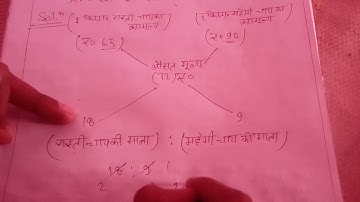 Solⁿ (1 किग्रा सस्ती चाय का क्रयमूल्य) (1 किग्रा महँगी चाय का क्रयमूल्य)
(₹0 63) (₹0 90)
औसत मूल्य
(72) ₹0
18 9
(सस्ती चाय की मात्रा) : (महँगी चाय की मात्रा)
18 : 9 1
2